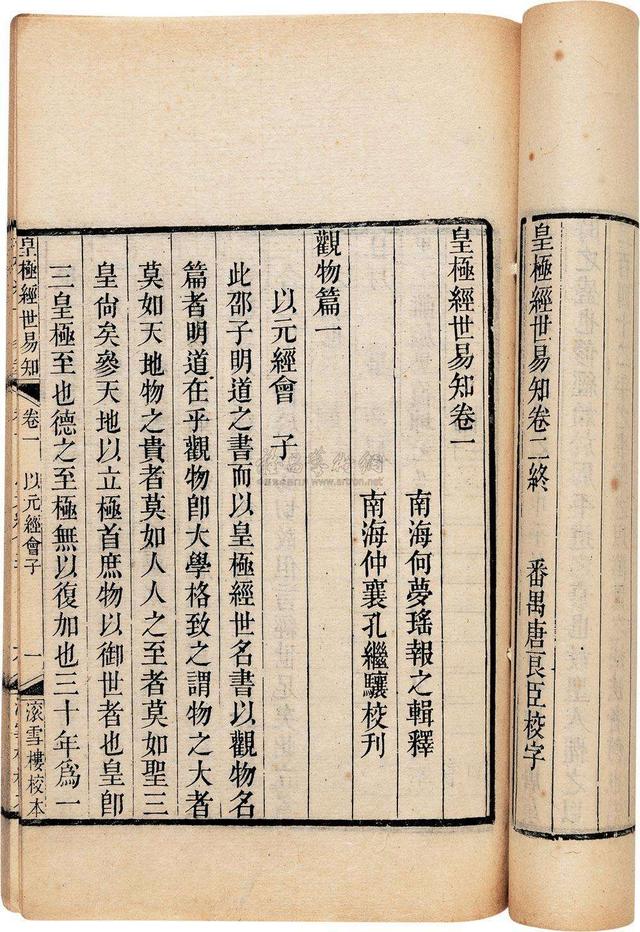 皇極經世易知卷二終　番禺唐良臣校字
皇極經世易知卷一
南海何夢瑤報之輯釋
南海仲襄孔繼驤校刊
觀物篇一
以元經會　子
此邵子明道之書而以皇極經世名書以觀物名
篇者明道在乎觀物卽大學格致之謂物之大者
莫如天地物之貴者莫如人人之至者莫如聖三
皇尙矣參天地以立極首庶物以御世者也皇卽
三皇極至也德之至極無以復加也三十年爲一
皇極經世易知　卷一　以元經會子　一　滚雪樓校本
www.artron.net